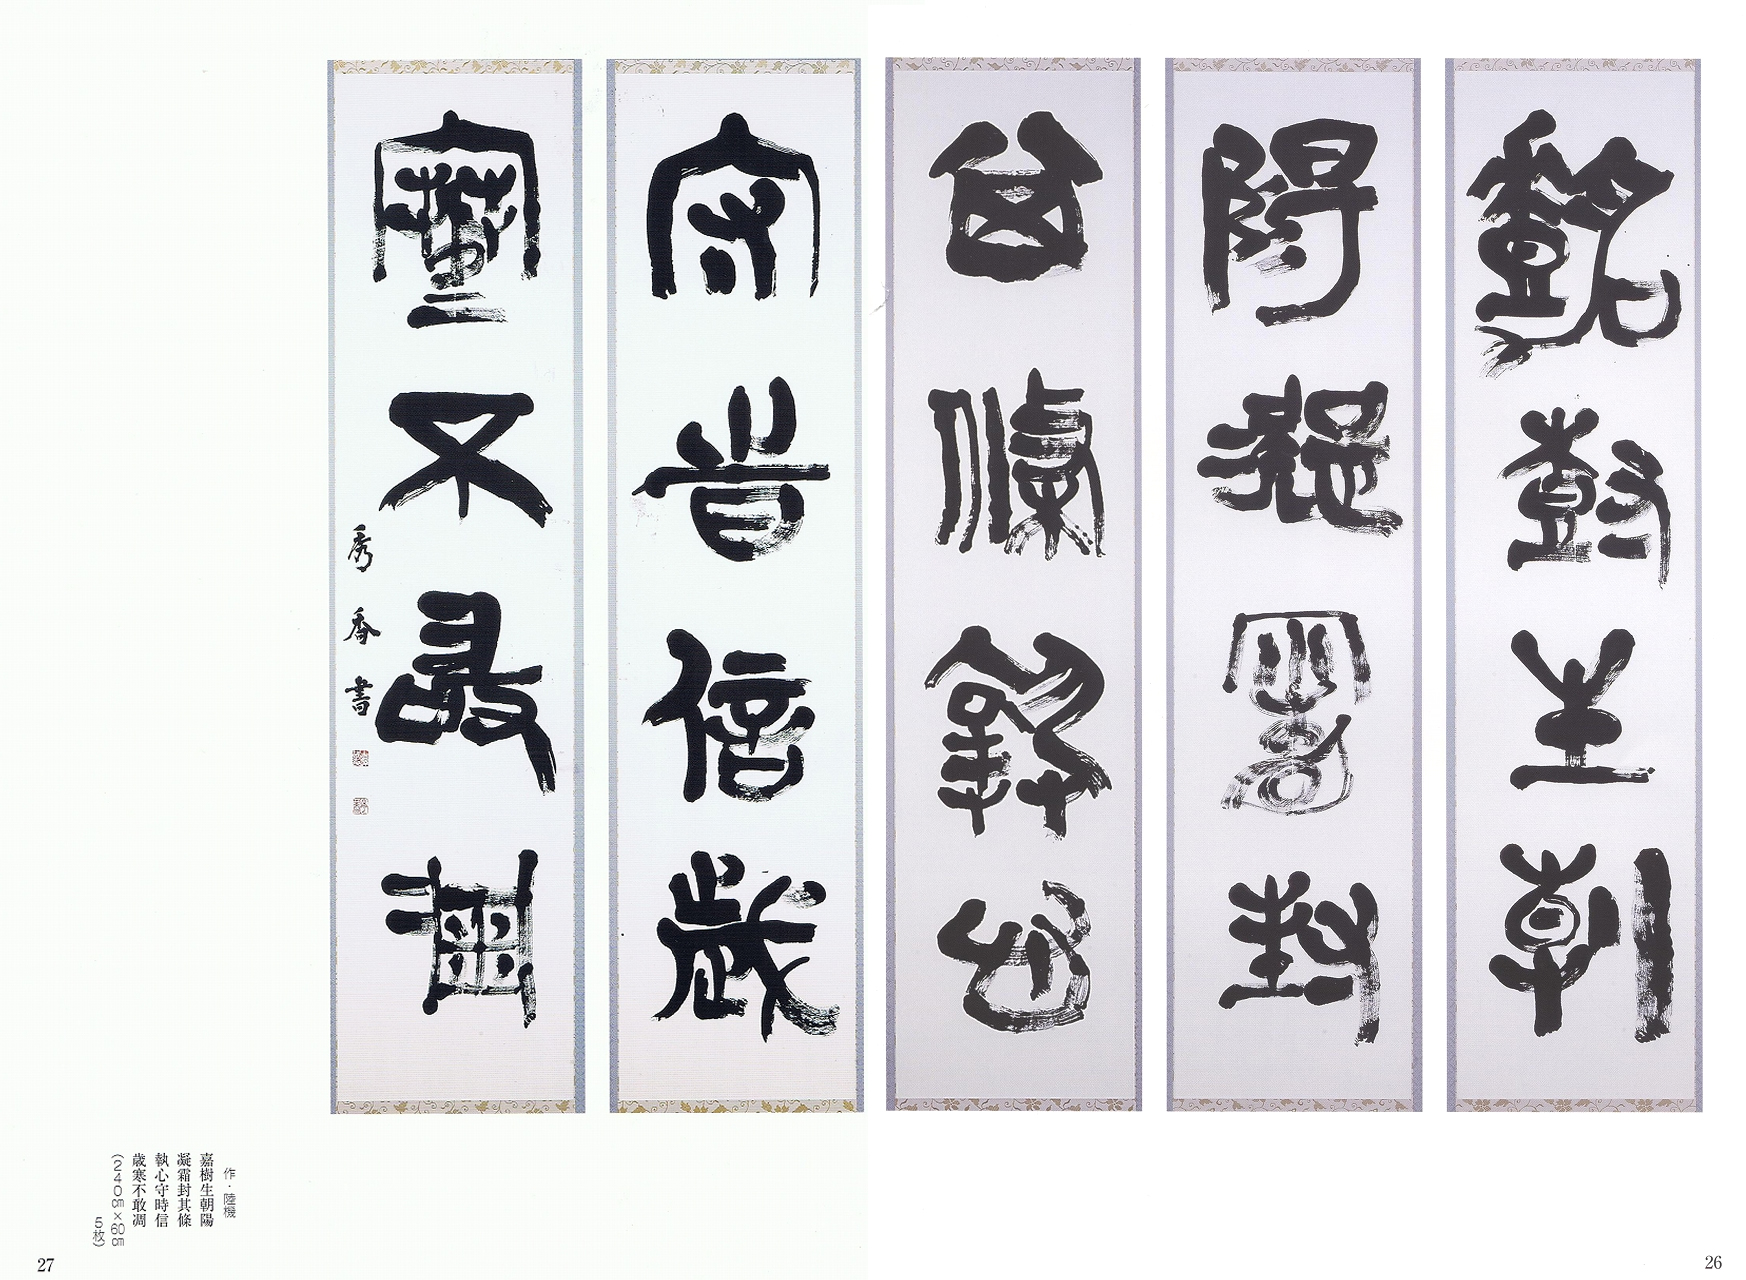 嘉樹生朝
陽凝霜封
其條執心
守時信歳
寒不敢凋
秀香書
作・陸機
嘉樹生朝陽
凝霜封其條
執心守時信
歳寒不敢凋
(240㎝×60㎝
5枚)
26
27